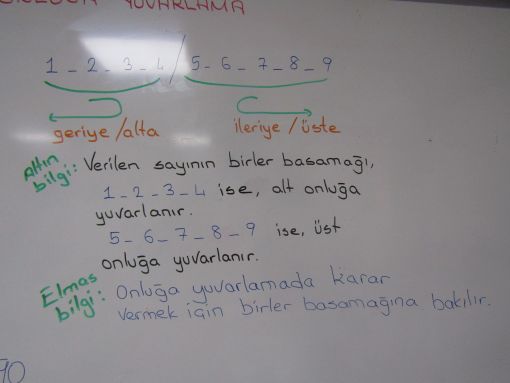 YUVARLAMA
1 _ 2 _ 3 _ 4 / 5 _ 6 _ 7 _ 8 _ 9
geriye /alta ileriye / üste
Altın bilgi: Verilen sayının birler basamağı,
1 _ 2 _ 3 _ 4 ise, alt onluğa
yuvarlanır.
5 _ 6 _ 7 _ 8 _ 9 ise, üst
onluğa yuvarlanır.
Elmas bilgi: Onluğa yuvarlamada karar
vermek için birler basamağına bakılır.